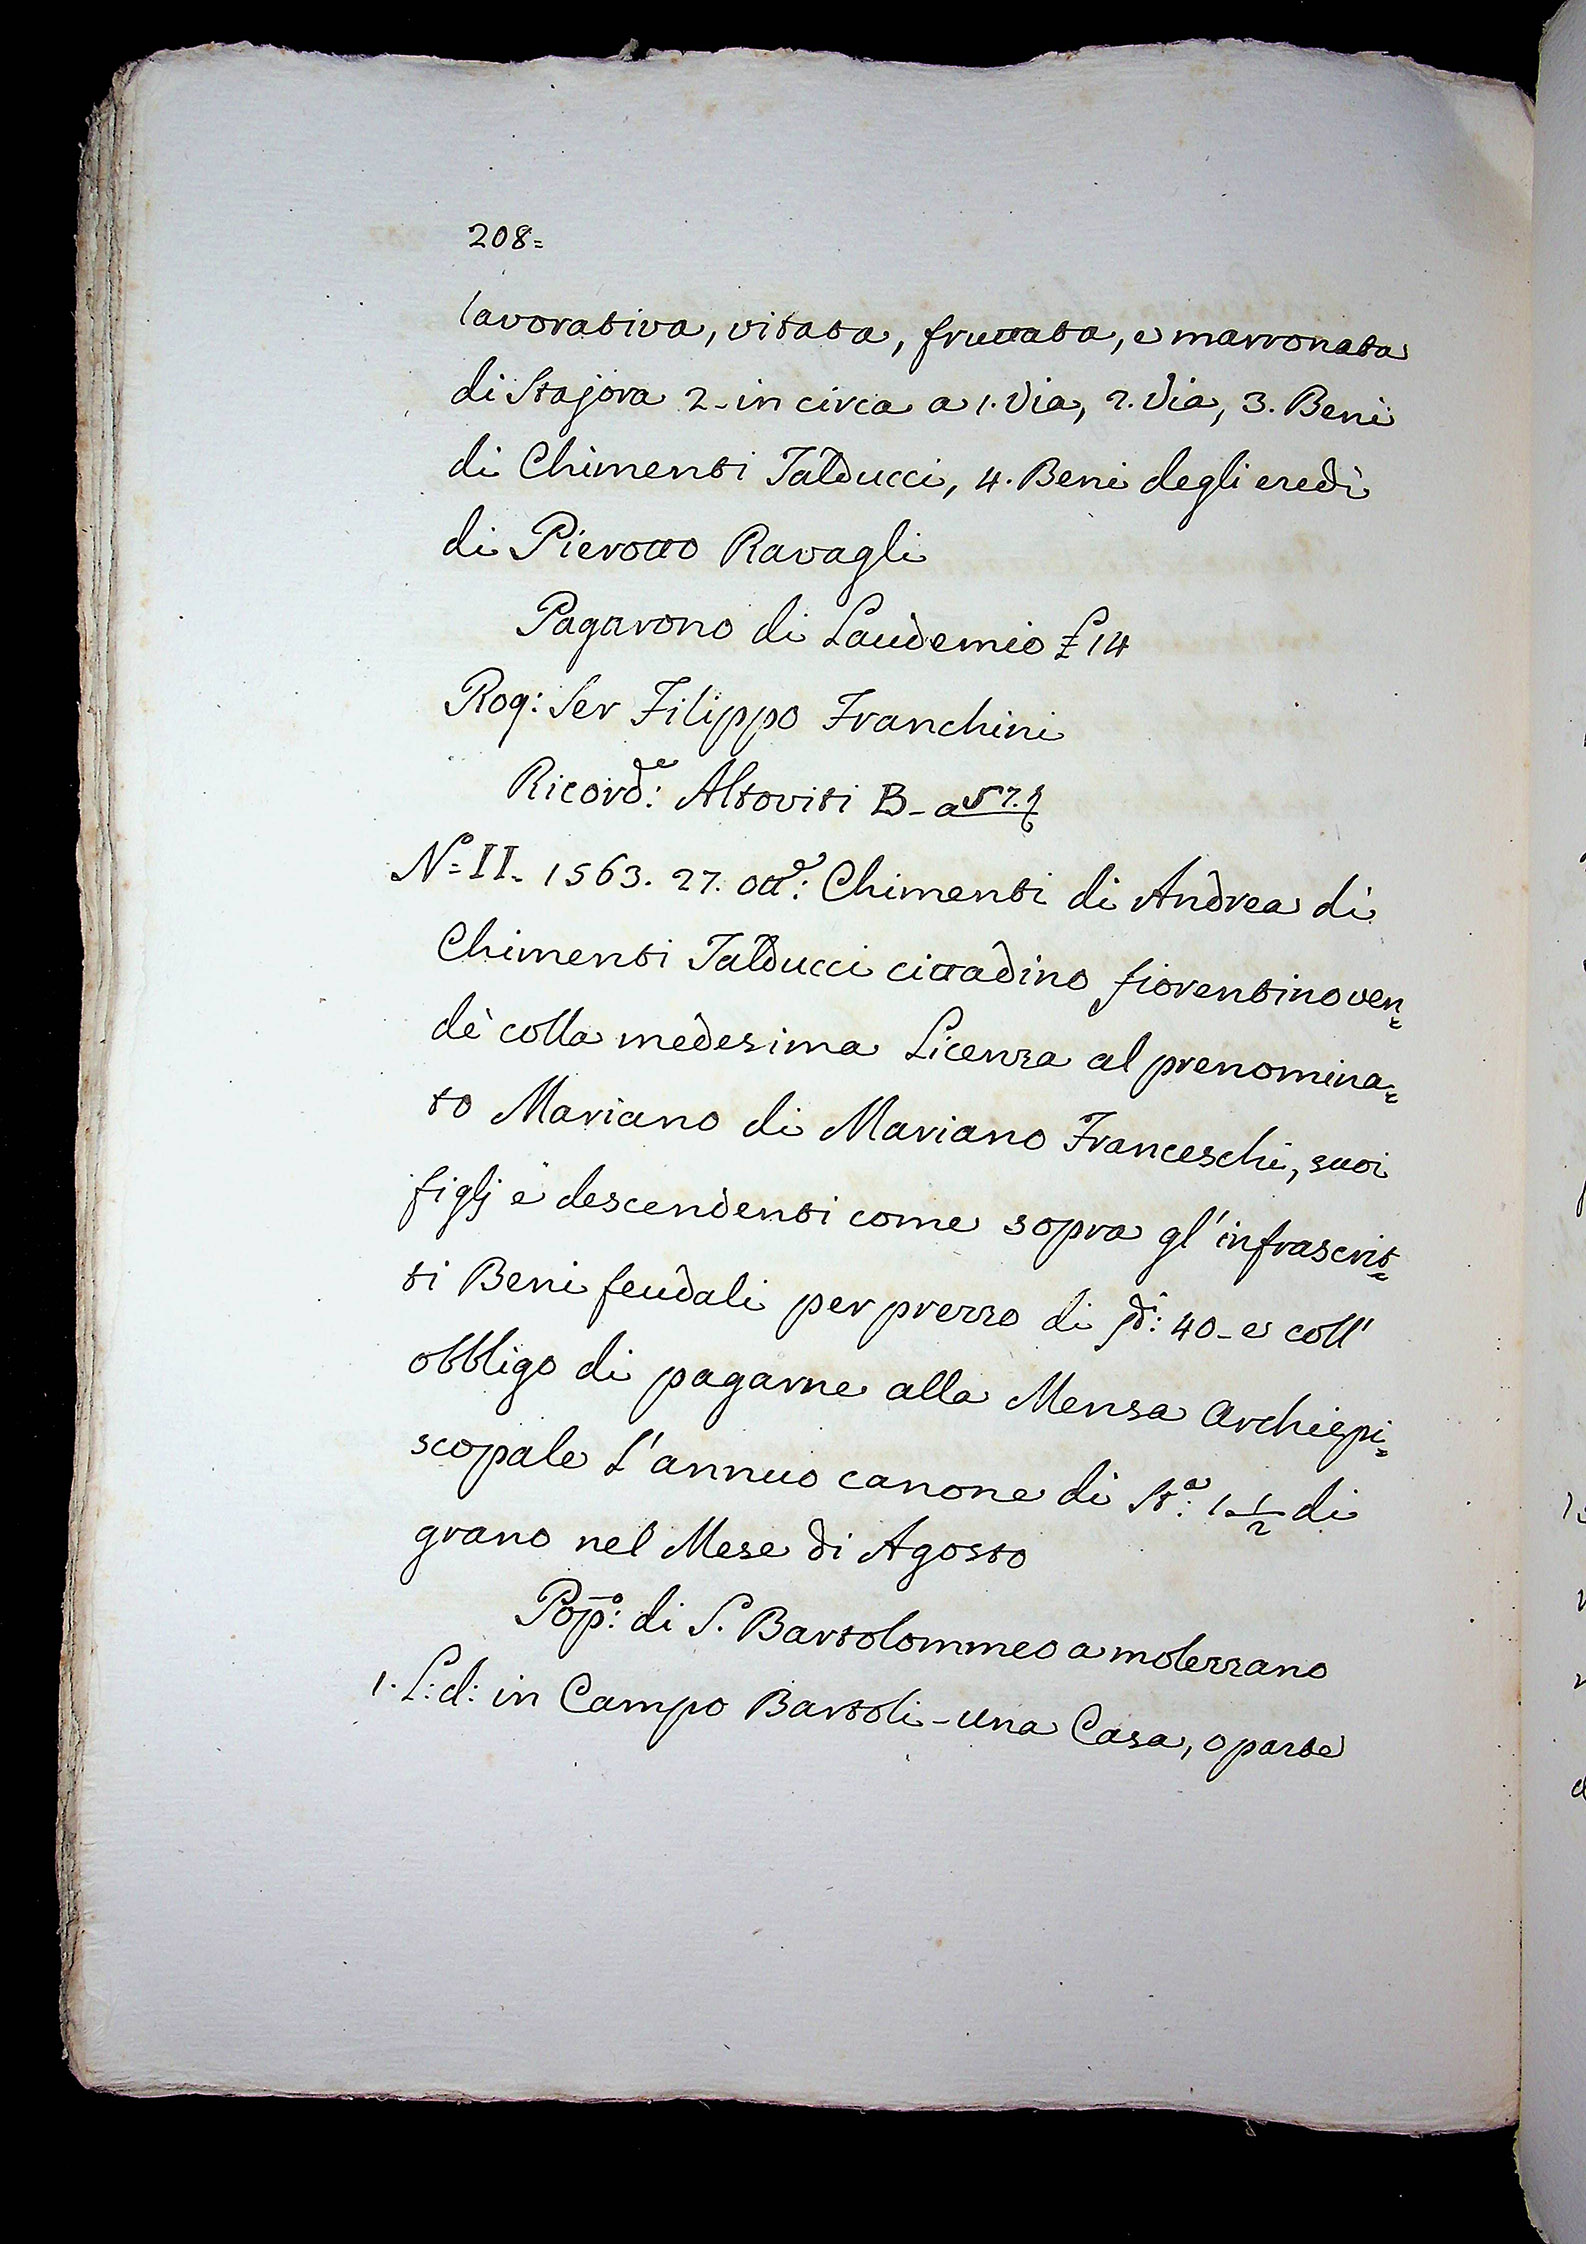 208=
lavorativa, vitata, fruttata, e marronata
di Stajora 2 - in circa a 1. Via, 2. Via, 3. Beni
di Chimenti Talducci, 4. Beni degli eredi
di Pierotto Ravagli
Pagarono di Laudemio £ 14
Rog: Ser Filippo Franchini
Ricord.e: Altoviti B - a 57.
N.o = II. 1563. 27. ott.e: Chimenti di Andrea di
Chimenti Talducci cittadino fiorentino ven=
dè colla medesima Licenza al prenomina=
to Mariano di Mariano Franceschi, suoi
figlj e descendenti come sopra gl'infrascrit=
ti Beni feudali per prezzo di 40 - e coll'
obbligo di pagarne alla Mensa Archiepi=
scopale l'annuo canone di St.a: 1 1/2 di
grano nel Mese di Agosto
Pop.o: di S. Bartolommeo a molezzano
1. L: d: in Campo Bartoli - una Casa, o parte